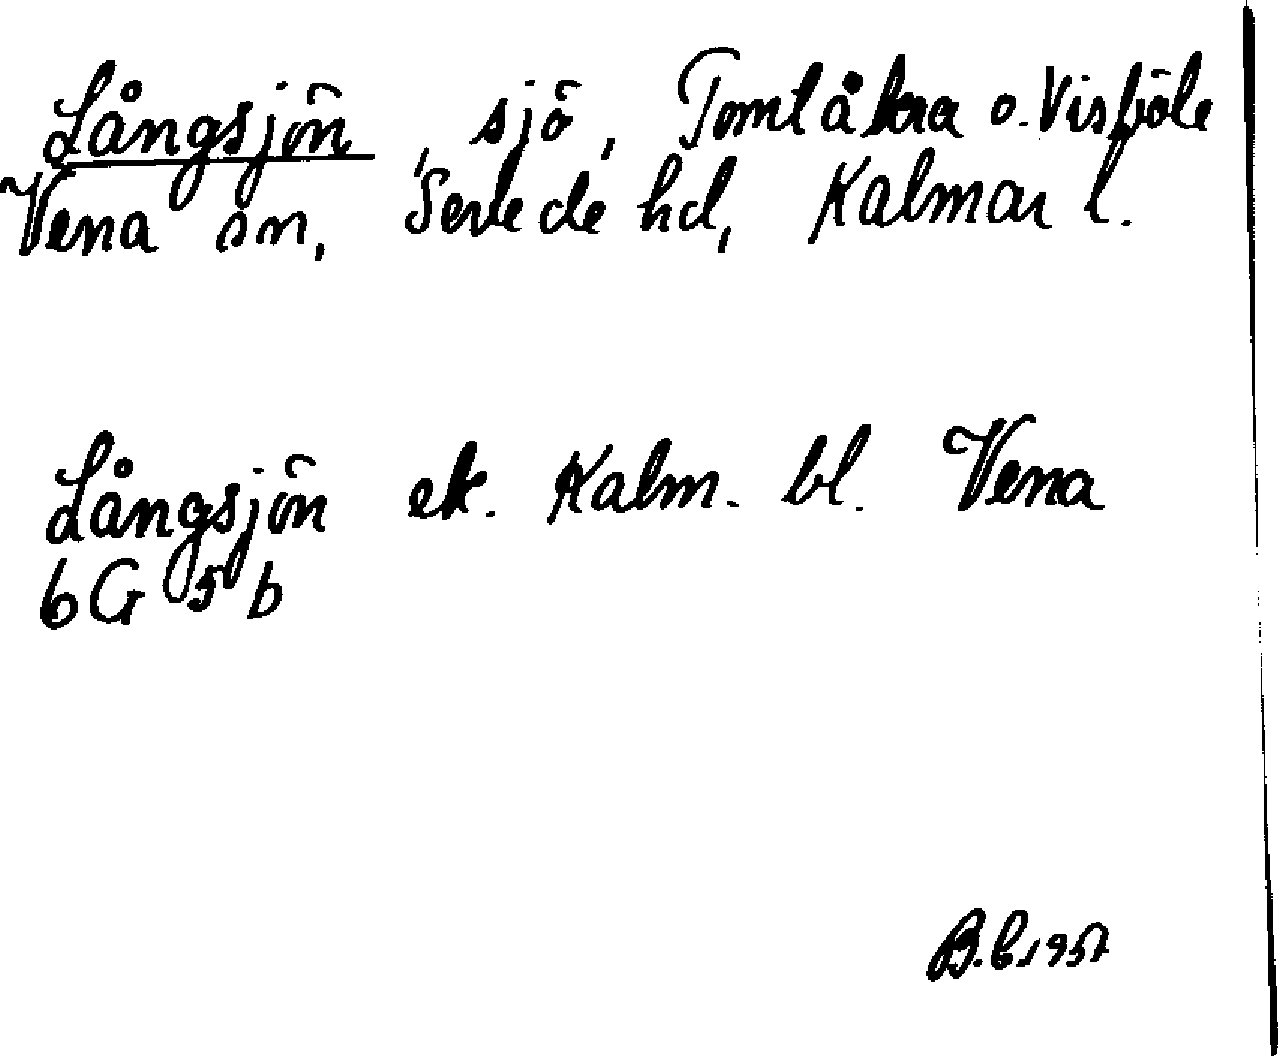 Långsjön, sjö, Tomtåkra o. Visböle
Vena sn, Sevede hd, Kalmar l.
Långsjön ek. Kalm. bl. Vena
6G 5 b
B.E 1957